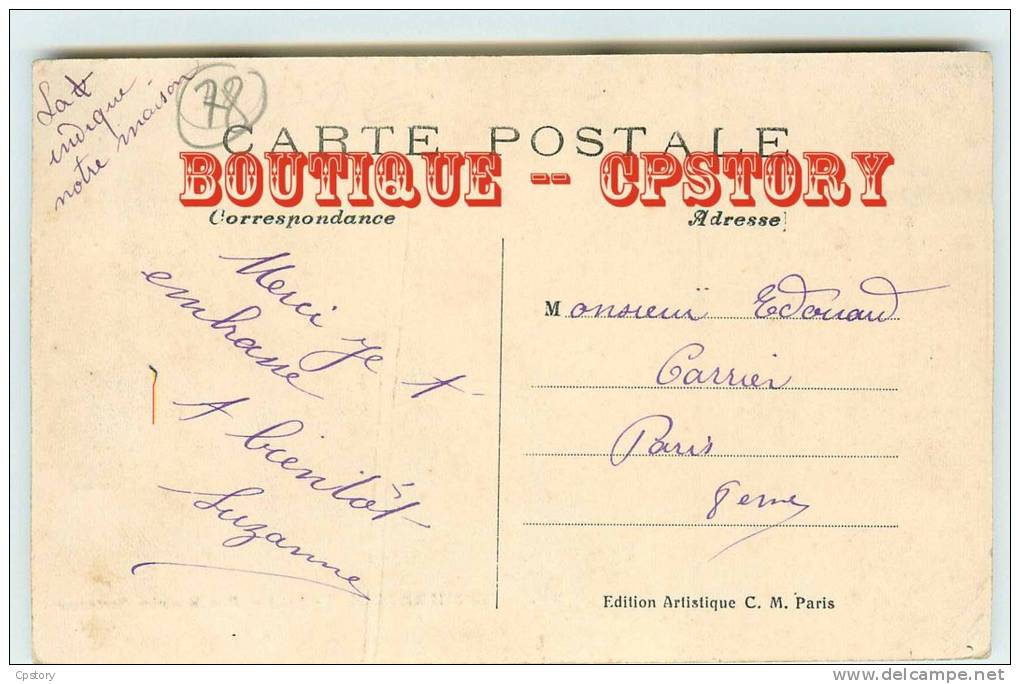 La + indique
notre maison
78
CARTE POSTALE
BOUTIQUE -- CPSTORY
Correspondance
Adresse
Merci Je t
embrasse
A bientôt
Suzanne
Monsieur Edouard
Carrier
Paris
Edition Artistique C. M. Paris
Cpstory
www.delcampe.net